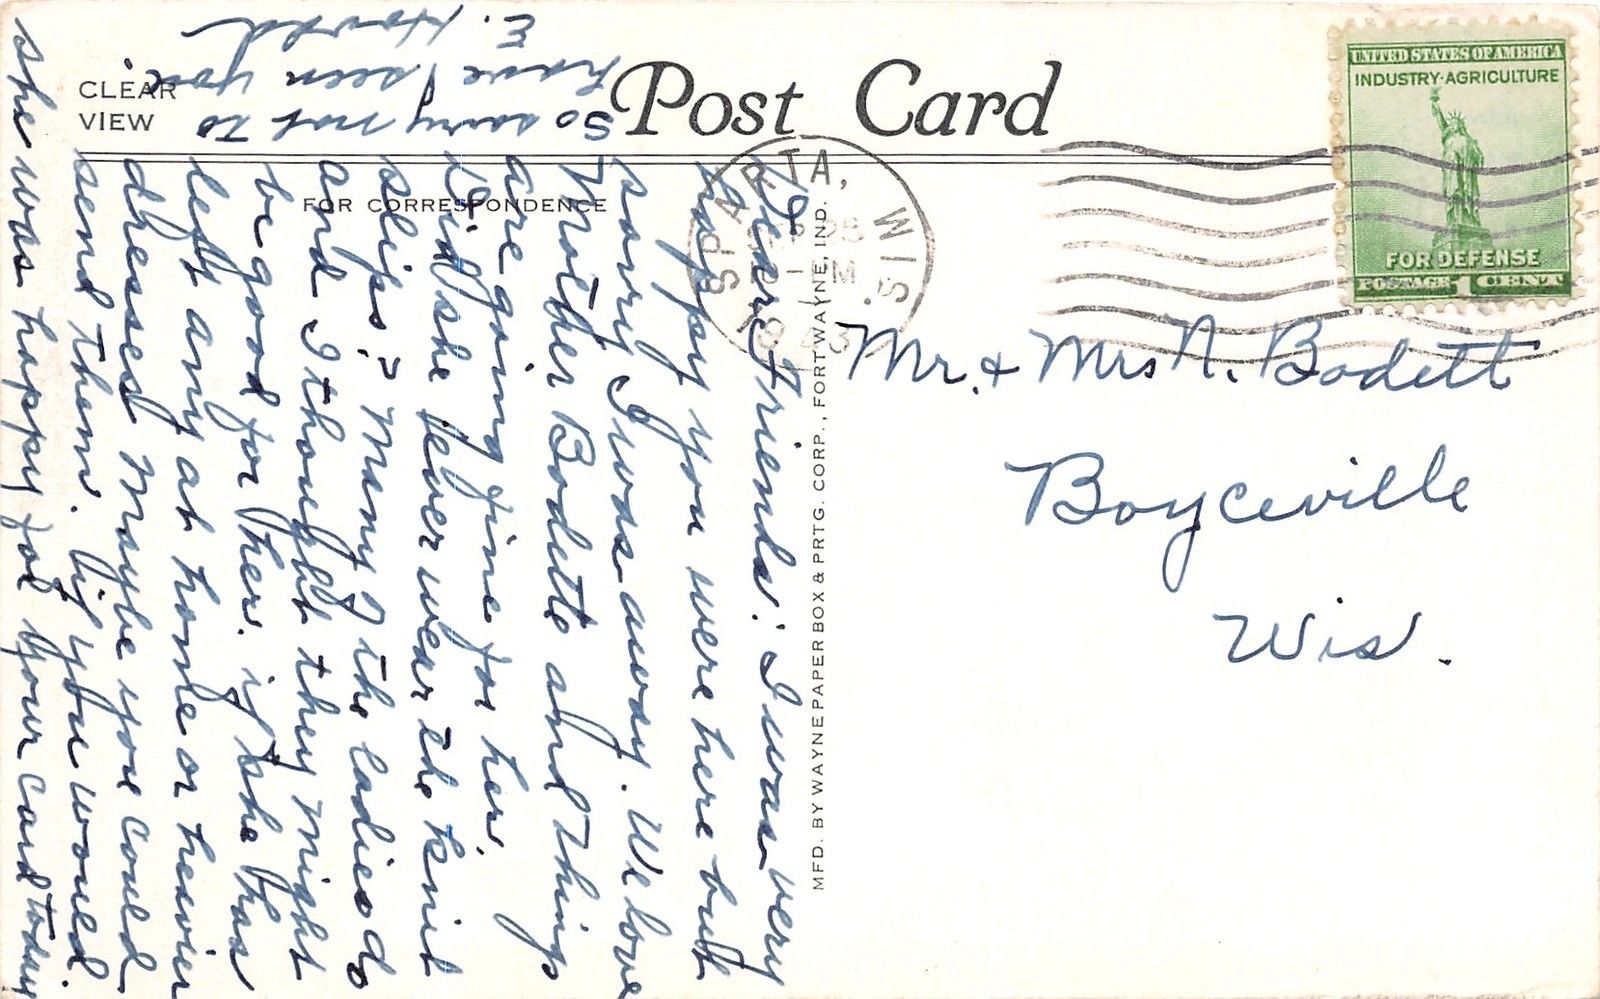 CLEAR
VIEW
Post Card
FOR CORRESPONDENCE
UNITED STATES OF AMERICA
INDUSTRY·AGRICULTURE
FOR DEFENSE
POSTAGE 1 CENT
SPARTA,
WIS.
M
1943
MFD. BY WAYNE PAPER BOX & PRTG. CORP., FORT WAYNE, IND.
Mr. & Mrs N. Bodett
Boyceville
Wis.
Dear Friends: I was very
happy you were here but
sorry I was away. We love
Mother Bodette and things
are going fine for her.
Did she ever wear the knit
slips? Many of the ladies do
and I thought they might
be good for her. if she has
left any at home or heavier
dresses maybe you could
send them. if you would.
she was happy for your card today
So sorry not to
have seen you.
E. Hovkd